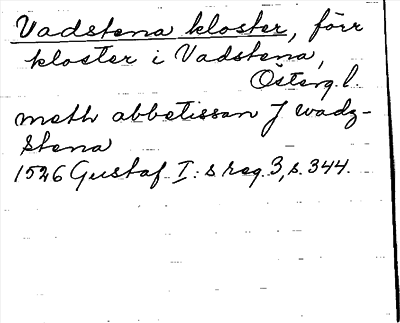 Vadstena kloster, förr
kloster i Vadstena,
Österg.l.
meth abbetissan J wadz-
stena
1526 Gustaf I:s reg. 3, s. 344.